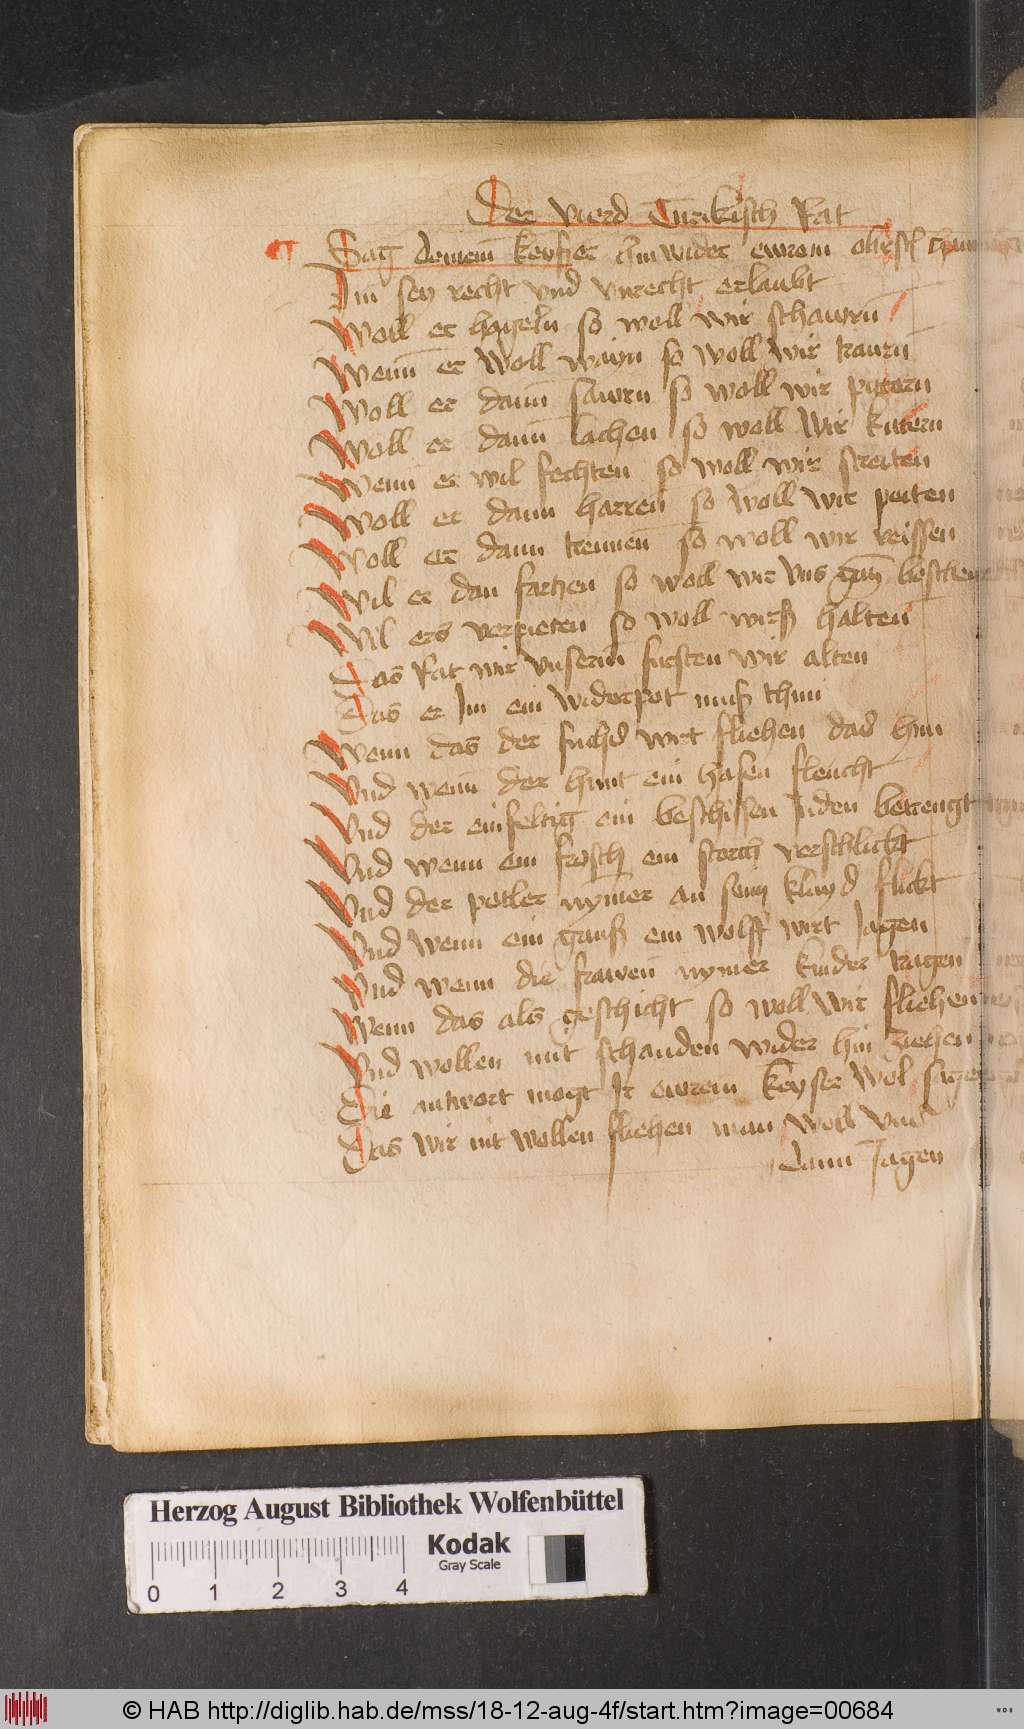 Der vierd Turckisch Rat
Sag deinem keyser hinwider ewrem obrsten
Im sey recht vnd vnrecht erlaubt
Woll er hageln so woll wir schawrn
Wenn er woll wayn so woll wir trawrn
Woll er dann sawrn so woll wir pittern
Woll er dann lachen so woll wir kuttern
Wenn er wil fechten so woll wir streiten
Woll er dann harren so woll wir peiten
Woll er dann trennen so woll wir reissen
Wil er dan fartzen so woll wir vns gantz
Wil ers verpieten so woll wirß halten
Das Rat wir vnserm fursten wir alten
Das er Im ein widerpot muß thun
Wenn das der fuchs wirt fliehen das hun
Vnd wenn der hunt ein hasen fleucht
Vnd der einfeltig ein beschissen Juden
Vnd wenn ein frosch ein storch verschlickt
Vnd der petler nymer an seim klayd flickt
Vnd wenn ein ganß ein wolff wirt Jagen
Vnd wenn die frawen nymer kinder tragen
Wenn das als geschicht so woll wir fliehen
Vnd wollen mit schanden wider hin ziehen
Die antwort mogt Ir ewrem keyser wol sagen
Das wir nit wollen fliehen man woll vns
dann Jagen
Herzog August Bibliothek Wolfenbüttel
Kodak
Gray Scale
0 1 2 3 4
© HAB http://diglib.hab.de/mss/18-12-aug-4f/start.htm?image=00684